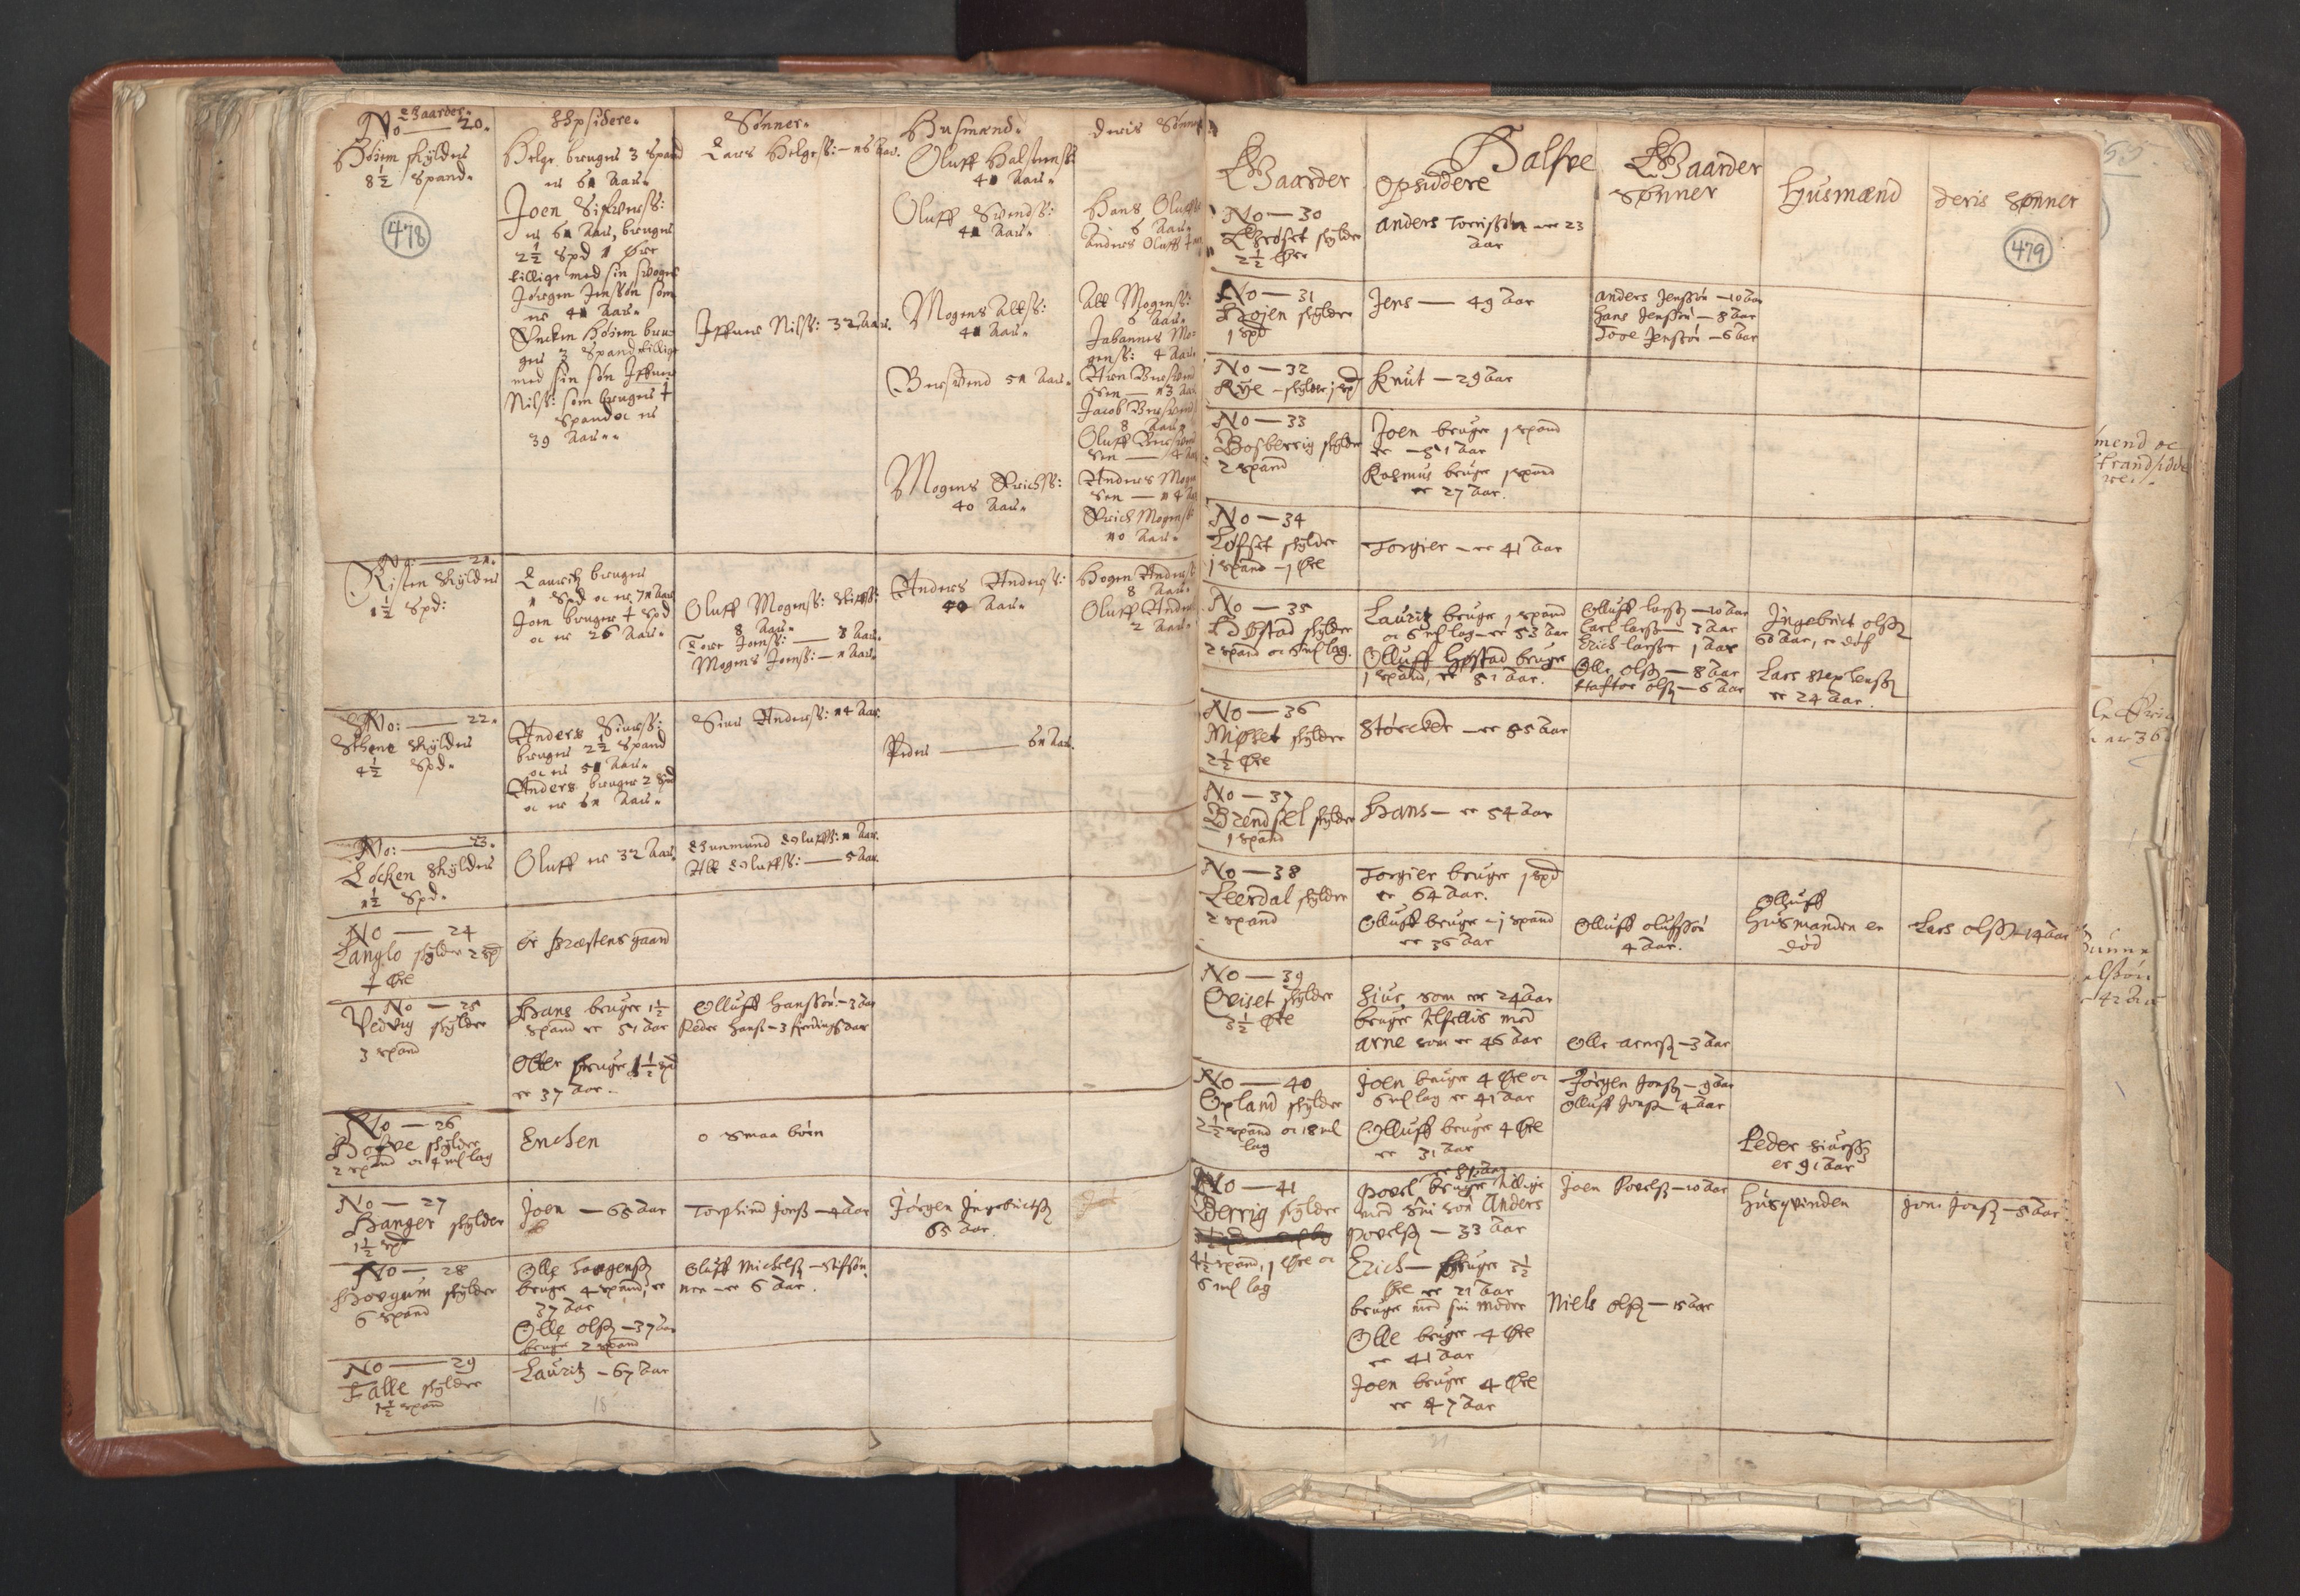 Gaarder.
No — 20.
Høiem skylder
8½ Spand.
478
Opsidere.
Helge bruger 3 Spand
er 61 Aar.
Joen Sifversß:
er 61 Aar, bruger
2½ Spd 1 Øre
tillige med sin svoger
Jørgen Jensßøn som
er 41 Aar.
Encken Høiem bru-
ger 3 Spand tillige
med sin søn Iffuer
Nilsß: som bruger
Spand oc er
39 Aar.
Sønner.
Lars Helgesß: — 16 Aar.
Iffuer Nilsß: 32 Aar.
Husmænd.
Oluff Halstensß:
41 Aar.
Oluff Svendsß:
41 Aar.
Mogens Altsß:
41 Aar.
Bersvend 51 Aar.
Mogens Erichsß:
40 Aar.
Deris Sønner
Hans Oluffs
6 Aar.
Anders Oluffs
Alt Mogensß:
6 Aar.
Johannes Mo-
gensß: 4 Aar.
Aren Bersvend
sen — 13 Aar
Jacob Bersvends
8 Aar.
Oluff Bersvend
sen — 4 Aar
Anders Mogen
sen — 14 Aar
Erich Mogensß
10 Aar.
No: — 21.
Risten Skylder
1½ Spd:
Lauritz bruger
1 Spd oc er 71 Aar
Joen bruger ½ Spd
oc er 26 Aar.
Oluff Mogensß: Stifsß:
8 Aar.
Tore Joensß: — 3 Aar.
Mogens Joensß: — 1 Aar.
Anders Andersß:
40 Aar.
Hogen Andersß
8 Aar.
Oluff Anders
2 Aar.
No: — 22.
Sthene Skylder
4½ Spd.
Anders Siursß:
bruger 2½ Spand
oc er 51 Aar.
Anders bruger 2 Spd
oc er 61 Aar.
Siur Andersß: 14 Aar.
Peder — 61 Aar.
No: — 23.
Løcken Skylder
1½ Spd.
Oluff er 32 Aar.
Gunmund Oluffsß: 11 Aar.
Alt Oluffsß: — 5 Aar.
No — 24
Langlo skylder 2 sp
1 Øre
er præstens gaard
No — 25
Vedvig skylder
3 spand
Hans bruger 1½
spand er 51 Aar
Otter bruger 1½ spd
er 37 Aar.
Olluff Hansßøn — 3 Aar
Peder Hansß — 3 fierdings Aar
No — 26
Hofve skylder
2 spand oc 4 ml lag
Enchen
0 smaa børn
No — 27
Hanger skylder
1½ spd
Joen — 65 Aar
Torphind Jonsß — 4 Aar
Jørgen Ingebrictsß
65 Aar.
No — 28
Hovgum skylder
6 spand
Olle Havgensß
bruger 4 spand, er
37 Aar
Olle olsß — 37 Aar
bruger 2 spand
Oluff Michelsß — stifsøn-
nen — er 6 Aar.
No — 29
Talle skylder
1½ spand
Lauritz — 67 Aar
Halfve Gaarder
Gaarder
Opsiddere
Sønner
Husmænd
Deris Sønner
479
No — 30
Grøset skylder
2½ Øre
Anders Torrisßøn — er 23
Aar
No — 31
Røien skylder
1 spd
Jens — 49 Aar
Anders Jensßøn — 10 Aar
Hans Jensßøn — 8 Aar
Tore Jensßøn — 6 Aar
No — 32
Rye — skylder 1 spd
Knut — 29 Aar
No — 33
Bosberrig skylder
2 spand
Joen bruger 1 spand
er — 81 Aar
Rasmus bruger 1 spand
er 27 Aar.
No — 34
Løfset skylder
1 spand — 1 Øre
Torgier — er 41 Aar
No — 35
Løbstad skylder
2 spand oc 6 ml lag.
Lauritz bruger 1 spand
oc 6 ml lag — er 53 Aar
Olluff Høstad bruger
1 spand, er 51 Aar.
Olluff larsß — 10 Aar
Carl larsß — 3 Aar
Erich larsßn 1 Aar
Olle olsß — 8 Aar
Haftor olsß — 6 Aar
Ingebrict olsß
60 Aar, er døf
Lars Stephensß
er 24 Aar.
No — 36
Miøset skylder
2½ Øre
Størcker — er 55 Aar
No — 37
Brendsel skylder
1 spand
Hans — er 54 Aar
No — 38
Leerdal skylder
2 spand
Torgier bruger 1 spd
er 64 Aar.
Olluff bruger — 1 spand
er 36 Aar
Olluff olufsøn
4 Aar.
Olluff
Husmanden er
død
Lars olsß — 14 Aar
No — 39
Qviset skylder
3½ Øre
Siur, som er 24 Aar
bruger Alfellis med
Arne som er 46 Aar
Olle arnesß — 3 Aar
No — 40
Opland skylder
2½ spand oc 18 ml
lag
Joen bruger 4 Øre oc
6 ml lag er 41 Aar
Olluff bruger 4 Øre
er 31 Aar
Jørgen Jonsß — 9 Aar
Olluff Jonsß — 4 Aar
Peder Siursß
er 91 Aar
No — 41
Berrig skylder
4½ spand, 1 Øre oc
6 ml lag
er 81 Aar
Povel bruger tillige
med sin søn Anders
Povelsß — 33 Aar
Erich — bruger 3½
Øre er 21 Aar
bruger med sin moder
Olle bruger 4 Øre
er 41 Aar
Joen bruger 4 Øre
er 47 Aar
Joen Povelsß — 10 Aar
Niels olsß — 15 Aar
Husqvinden
Jon Jonsß — 5 Aar